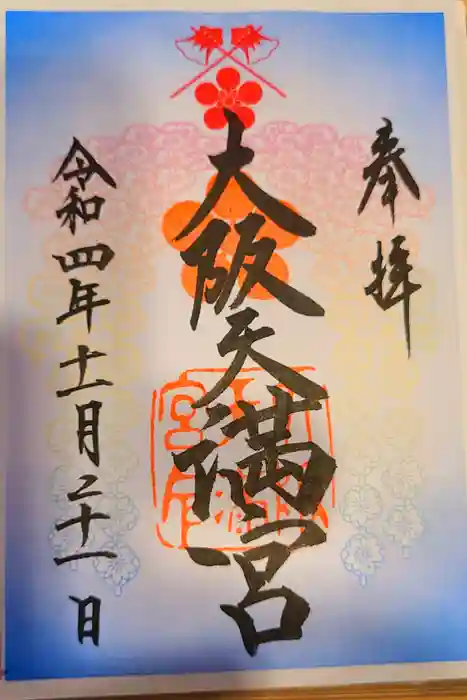 奉拝
大阪天満宮
令和四年十一月二十一日